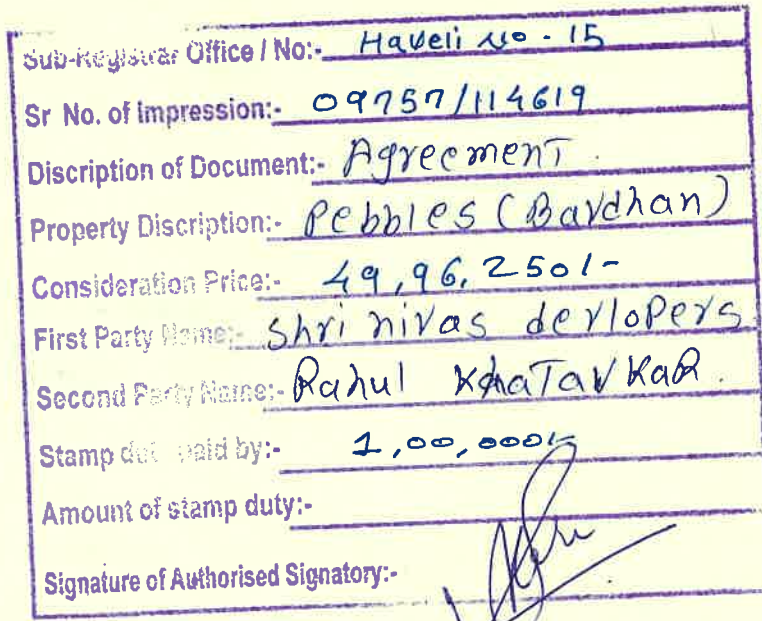 Sub-Registrar Office / No:- Haveli no - 15
Sr No. of Impression:- 09757/114619
Discription of Document:- Agreement.
Property Discription:- Pebbles (Bavdhan)
Consideration Price:- 49,96,250/-
First Party Name:- Shri nivas devlopers
Second Party Name:- Rahul Khatavkar.
Stamp duty paid by:- 1,00,000/-
Amount of stamp duty:-
Signature of Authorised Signatory:-